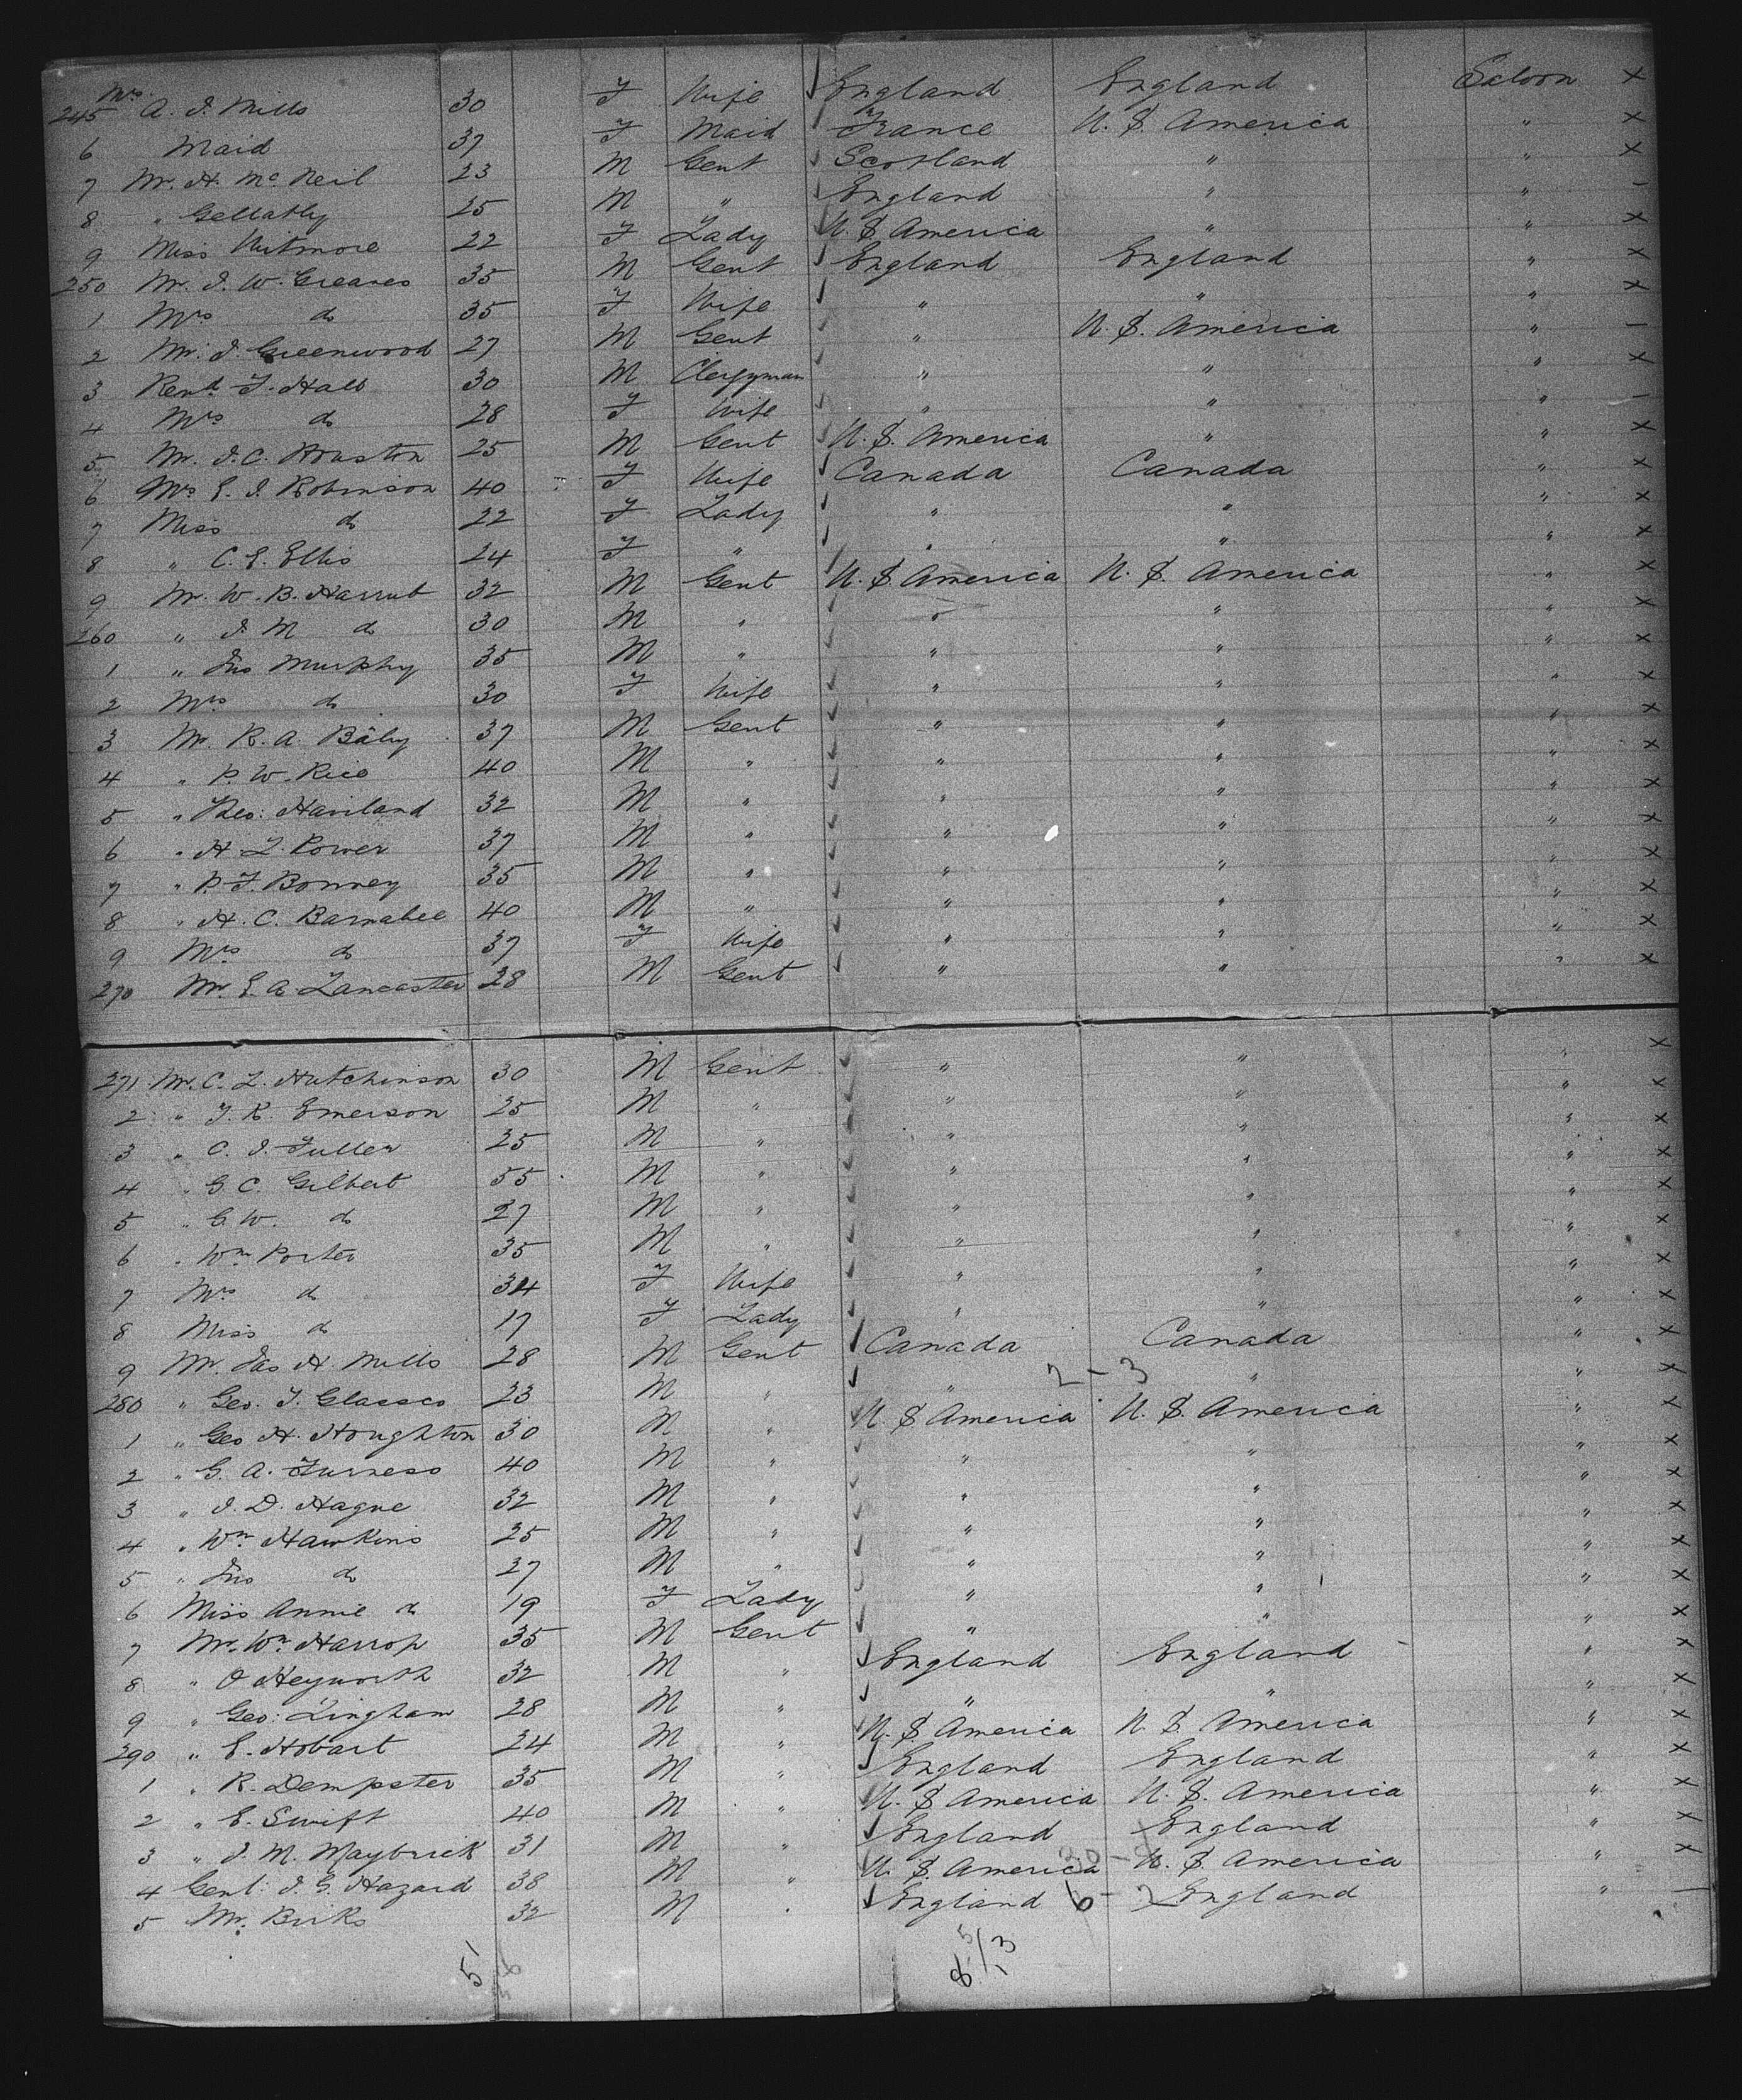 245 Mrs. A. J. Mills 30 F Wife England England Saloon x
6 Maid 37 F Maid France U. S. America " x
7 Mr. H. McNeil 23 M Gent Scotland " " x
8 " Gellatly 25 M " England " " -
9 Miss Witmore 22 F Lady U. S. America " " x
250 Mr. J. W. Greaves 35 M Gent England England " x
1 Mrs do 35 F Wife " " " x
2 Mr. J. Greenwood 27 M Gent " U. S. America " -
3 Revd. F. Hall 30 M Clergyman " " " x
4 Mrs do 28 F Wife " " " -
5 Mr. J. C. Houston 25 M Gent U. S. America " " x
6 Mrs E. J. Robinson 40 F Wife Canada Canada " x
7 Miss do 22 F Lady " " " x
8 " C. E. Ellis 24 F " " " " x
9 Mr. W. B. Harrub 32 M Gent U. S. America U. S. America " x
260 " J. M do 30 M " " " " x
1 " Jno Murphy 35 M " " " " x
2 Mrs do 30 F Wife " " " x
3 Mr. R. A. Bâby 37 M Gent " " " x
4 " P. W. Rice 40 M " " " " x
5 " Theo: Haviland 32 M " " " " x
6 " H. L. Power 37 M " " " " x
7 " P. F. Bonney 35 M " " " " x
8 " H. C. Barnabee 40 M " " " " x
9 Mrs do 37 F Wife " " " x
270 Mr. E. A. Lancaster 28 M Gent " " " x
271 Mr. C. L. Hutchinson 30 M Gent " " " x
2 " F. R. Emerson 25 M " " " " x
3 " C. J. Fuller 25 M " " " " x
4 " G. C. Gilbert 55 M " " " " x
5 " G. W. do 27 M " " " " x
6 " Wm Porter 35 M " " " " x
7 Mrs do 34 F Wife " " " x
8 Miss do 17 F Lady " " " x
9 Mr. Jas H. Mills 28 M Gent Canada Canada " x
2 - 3
280 " Geo. F. Glassco 23 M " " " " x
1 " Geo H. Houghton 30 M " U. S. America U. S. America " x
2 " G. A. Furness 40 M " " " " x
3 " J. D. Hague 32 M " " " " x
4 " Wm Hawkins 25 M " " " " x
5 " Jno do 27 M " " " " x
6 Miss Annie do 19 F Lady " " " x
7 Mr. Wm. Harrop 35 M Gent " " " x
8 " O Heyworth 32 M " England England " x
9 " Geo: Lingham 28 M " " " " x
290 " E. Hobart 24 M " U. S. America U. S. America " x
1 " R. Dempster 35 M " England England " x
2 " E. Swift 40 M " U. S. America U. S. America " x
3 " J. M. Maybrick 31 M " England England " x
4 Genl: J. G. Hazard 38 M " U. S. America U. S. America " x
5 Mr. Birks 32 M " England England " -
6 - 2
51